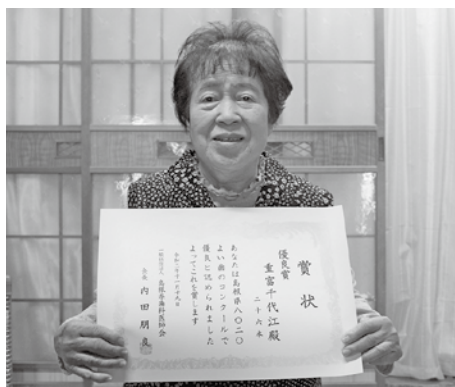 賞状
優良賞
重富千代江殿
二十六本
あなたは島根県8020
よい歯のコンクールで
優良と認められました
よってこれを賞します
一般社団法人 島根県歯科医師会
会長 内田朋良